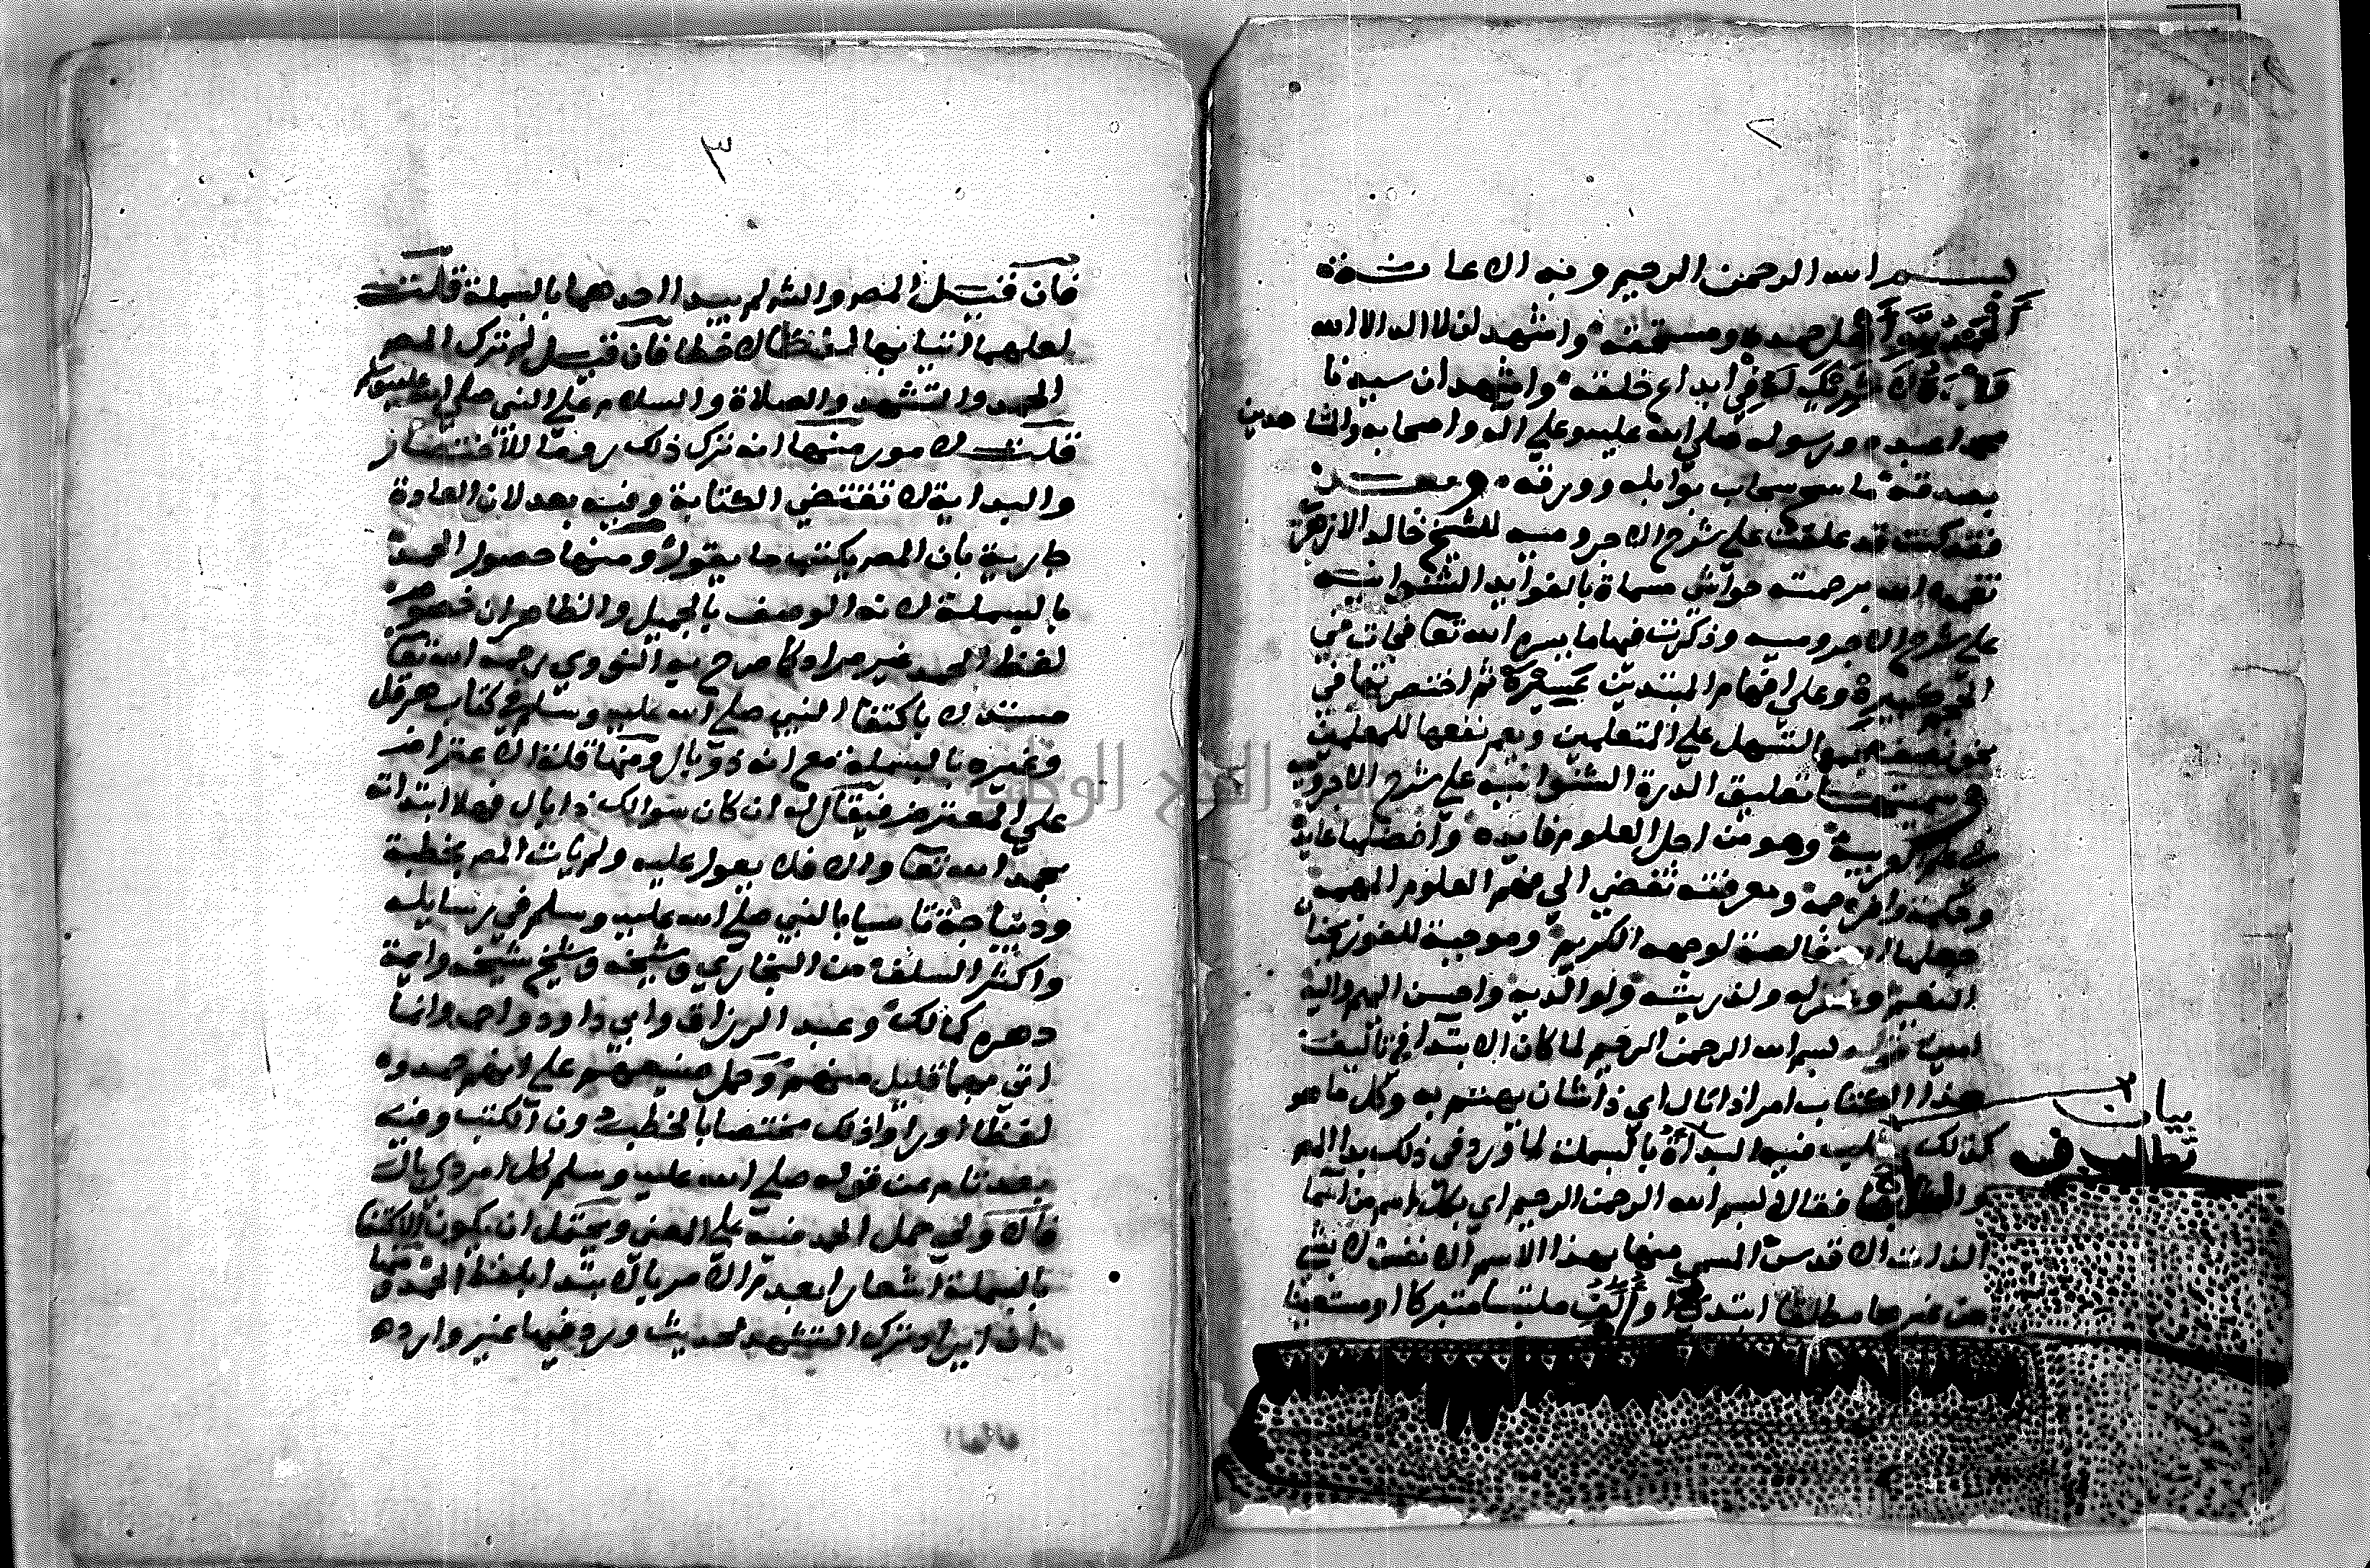 ٢
بسم الله الرحمن الرحيم وبه الاعانة
الحمد لله أجل حمده ومستحقه واشهد ان لا اله الا الله
شريك له في ابداع خلقه واشهد ان سيدنا
محمدا عبده ورسوله صلى الله عليه وعلى اله واصحابه والشاهدين
بصدقه ما سح سحاب بوابله وودقه وبعد
فقد كنت قد علقت على شرح الاجرومية للشيخ خالد الازهري
تغمده الله برحمته حواشي مسماة بالفوايد الشنوانية
على شرح الاجرومية وذكرت فيها ما يسره الله تعا فجات في
وعلى افهام المبتديين عسيرة ثم اختصرتها في
نحو نصف لتسهل على المتعلمين ويعم نفعها للمعلمين
وسميتها تعليق الدرة الشنوانية على شرح الاجرومية
في علم العربية وهو من اجل العلوم فايدة
ومعرفته تفضي الى فهم العلوم المهمة
جعلها الله خالصة لوجهه الكريم وموجبة للفوز بجنات
النعيم ولذريته ولوالديه واحسن اليهم واليه
امين قوله بسم الله الرحمن الرحيم لما كان الابتدا في تاليف
هذا الكتاب امرا ذا بال اي ذا شان يهتم به وكل ما هو
كذلك تطلب فيه البداة بالبسملة لما ورد في ذلك بدا الم
فقال بسم الله الرحمن الرحيم اي بكل اسم من اسما
الذات الاقدس المسمى منها بهذا الاسم الانفس لا بشي
من غيرها مطلقا ابتدئ او اؤلف ملتبسا متبركا او مستعينا
بيان
تطلب فيه
٣
فان قيل المص والش لم يبدا احدهما بالبسملة قلت
لعلهما اتيا بها لفظا لا خطا فان قيل لم ترك المص
الحمد والتشهد والصلاة والسلام على النبي صلى الله عليه وسلم
قلت لامور منها انه ترك ذلك روما للاختصار
والبداية لا تقتضي الكتابة وفيه بعد لان العادة
جارية بان المص يكتب ما يقول ومنها حصول الحمد
بالبسملة لانه الوصف بالجميل والظاهر ان خصوص
لفظ الحمد غير مراد كما صرح به النووي رحمه الله تعا
مستدلا باكتفا النبي صلى الله عليه وسلم في كتاب هرقل
وغيره بالبسملة مع انه ذو بال ومنها قلة الاعتراض
على المعترض فيقال له ان كان سوالك ذا بال فهلا ابتداته
بحمد الله تعا والا فلا يعول عليه ولم يات المص بخطبة
وديباجة تاسيا بالنبي صلى الله عليه وسلم في رسايله
واكثر السلف من البخاري وشيخه وشيخ شيخه وايمة
دهره كمالك وعبد الرزاق وابي داود واحمد وانما
اتى بها قليل منهم وحمل صنيعهم على انهم حمدوه
لفظا او راوا ذلك مختصا بالخطب دون الكتب وفيه
بعد تام عن قوله صلى الله عليه وسلم كل امر ذي بال
فالاولى حمل الحمد فيه على المعنى ويحتمل ان يكون الاكتفا
بالبسملة اشعارا بعدم الامر بالابتدا بلفظ الحمد ومنها
ان ترك التشهد لحديث ورد فيها غير وارده